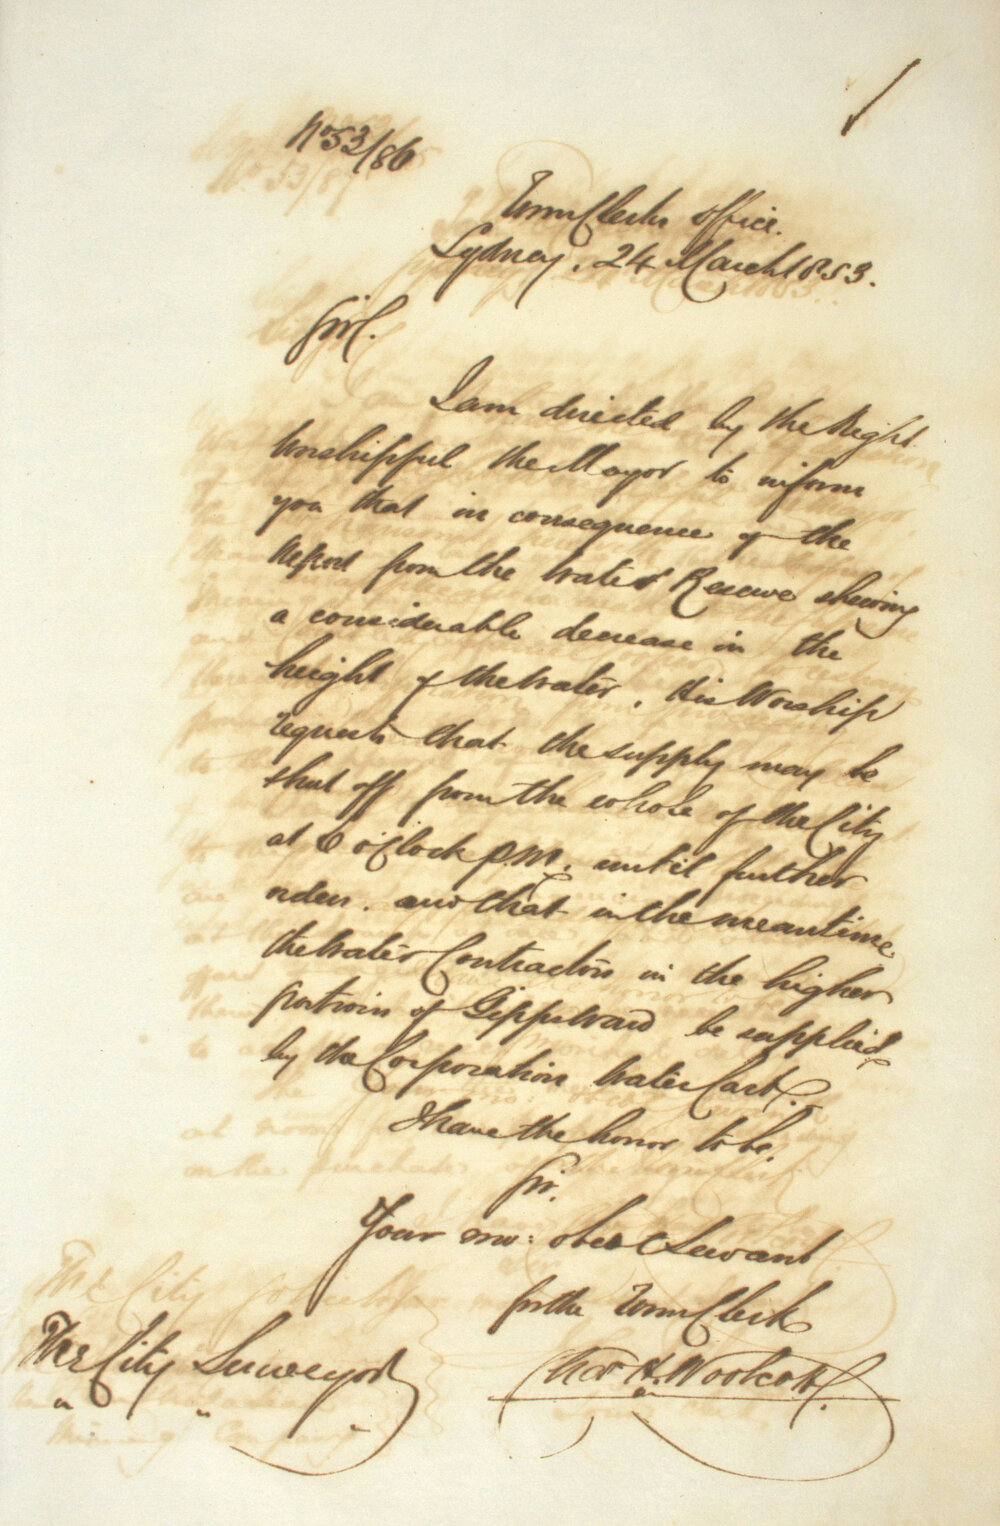 No 53/86
Town Clerks Office.
Sydney, 24 March 1853.
Sir.
I am directed by the Right
Worshipful the Mayor to inform
you that in consequence of the
Report from the Water Reserve shewing
a considerable decrease in the
height of the Water, His Worship
requests that the supply may be
shut off from the whole of the City
at 6 o'Clock p.m. until further
orders. and that in the meantime
the Water Contractors in the higher
portion of Gipps Ward be supplied
by the Corporation Water Cart.
I have the honor to be.
Sir.
Your mo: obed t Servant
for the Town Clerk
Chas H. Woolcott.
The City Surveyor
" " "